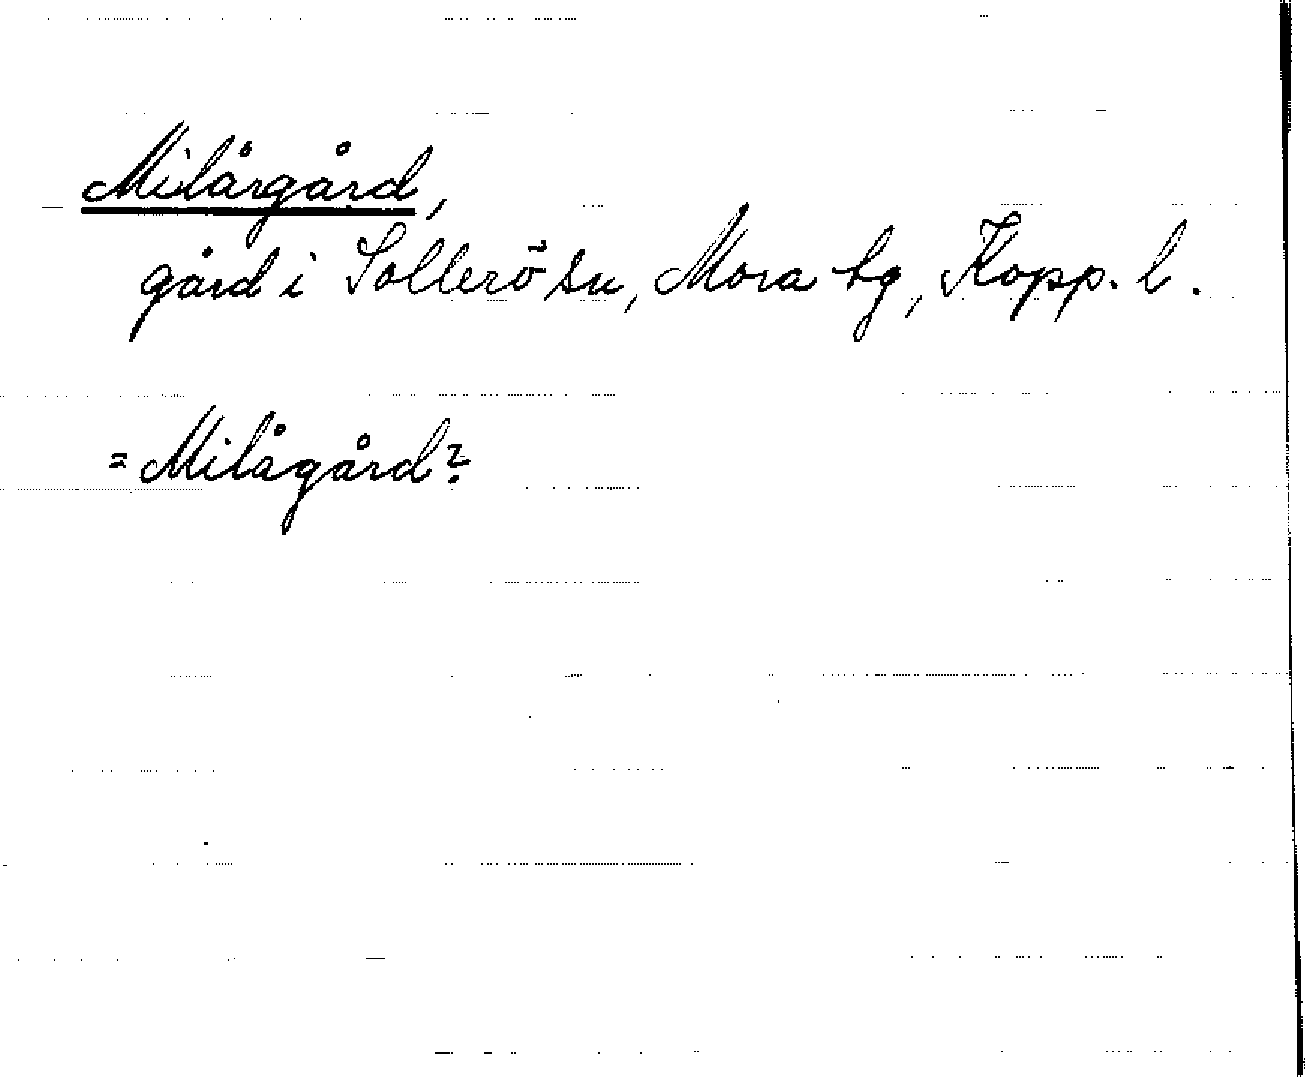 Milårgård,
gård i Sollerö sn, Mora tg, Kopp. l.
= Milågård?